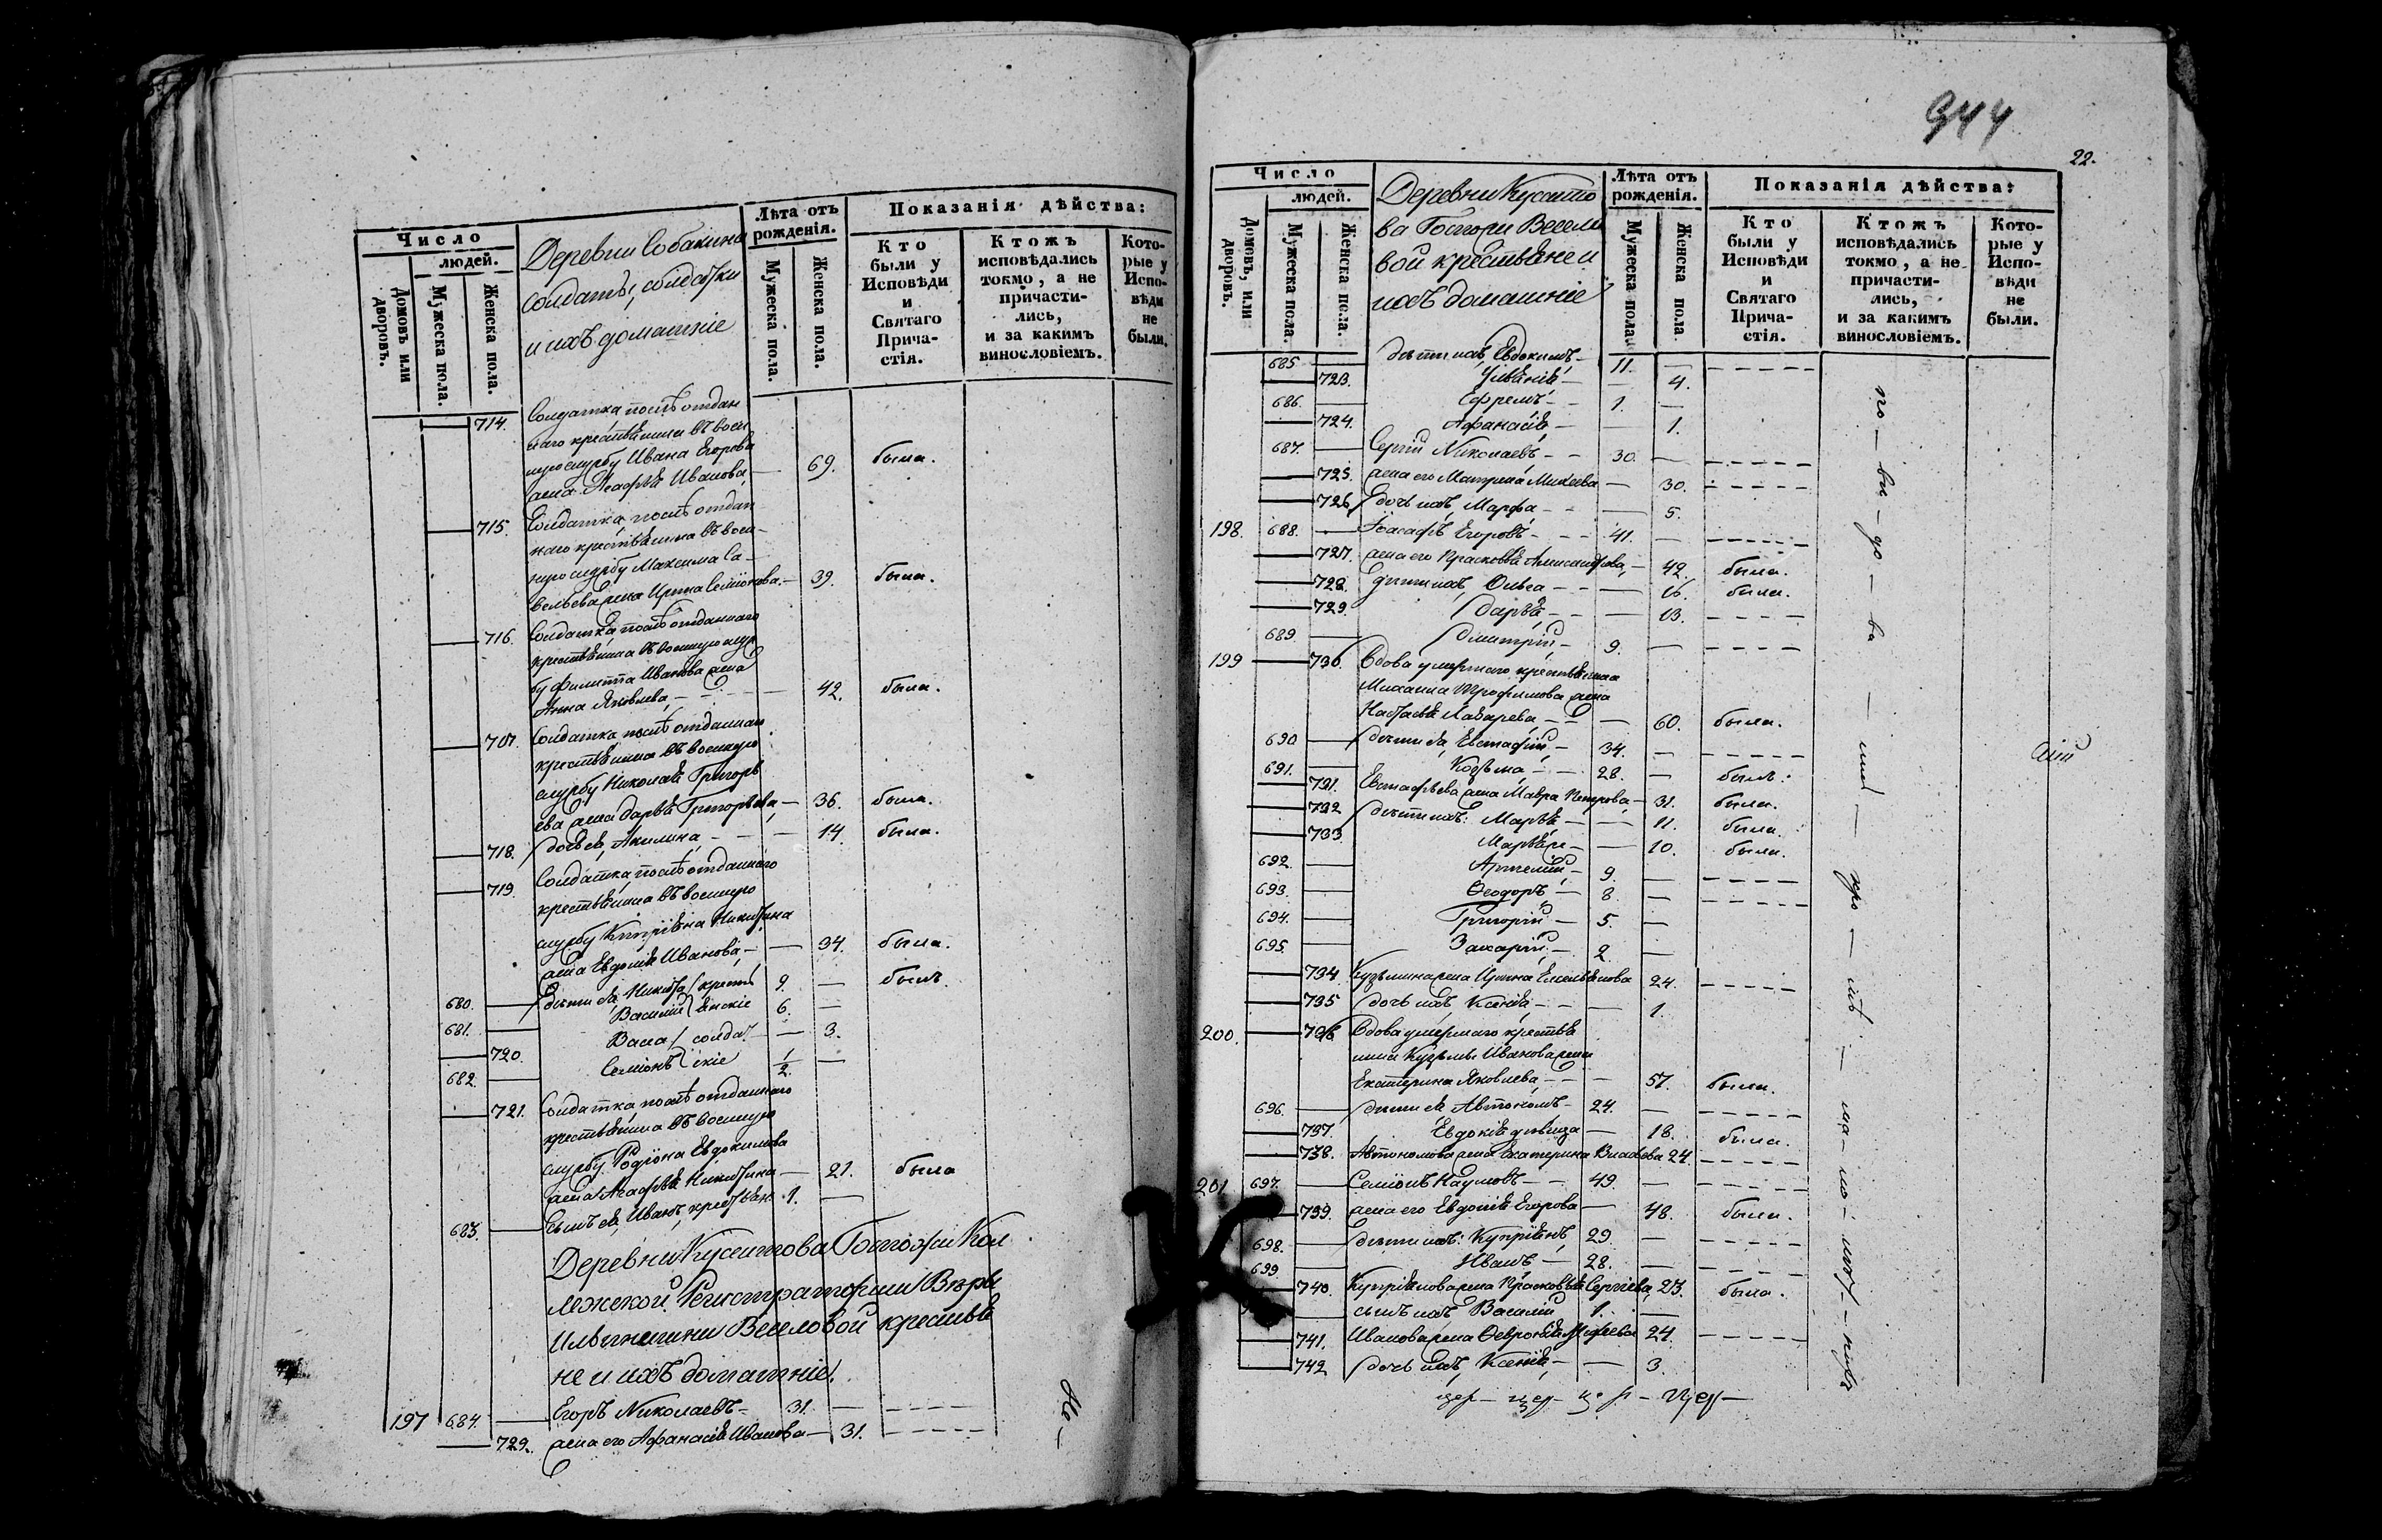 Число
людей.
Домовъ или дворовъ.
Мужеска пола.
Женска пола.
Деревни Собакина
солдаты, солдатки
и ихъ домашніе
Лѣта отъ рожденія.
Мужеска пола.
Женска пола.
Показанія дѣйства:
Кто были у Исповѣди и Святаго Причастія.
Ктожъ исповѣдались токмо, а не причастились, и за какимъ винословіемъ.
Которые у Исповѣди не были.
714. Солдатка послѣ отдан
наго крестьянина въ воен
ную службу Ивана Егорова
жена Агафья Иванова — 69. была.
715. Солдатка послѣ отдан
наго крестьянина въ воен-
ную службу Максима Са-
вельева жена Ирина Семіонова — 39. была.
716. Солдатка послѣ отданнаго
крестьянина въ военную служ
бу Филиппа Иванова жена
Анна Яковлева — 42. была.
717. Солдатка послѣ отданнаго
крестьянина въ военную
службу Николая Григорь
ева жена Дарья Григорьева — 36. была.
718. дочь ея, Акилина — 14. была.
719. Солдатка послѣ отданнаго
крестьянина въ военную
службу Кипріяна Никитина
жена Евдокія Иванова — 34. была.
680. дѣти ея, Никита 9. — былъ.
681. Василій 6. —
720. Васса — 3.
682. Семіонъ 1/2 —
721. Солдатка послѣ отданнаго
крестьянина въ военную
службу Родіона Евдокимова
жена Агафья Никитина — 21. была
683. сынъ ея, Иванъ 1. —
Деревни Кусаитова Госпожи Кол
лежской Регистраторши Вѣры
Ильинишны Веселовой крестья
не и ихъ домашніе.
197 684. Егоръ Николаевъ — 31. —
722. жена его Афанасія Иванова — 31.
944
22.
Число
людей.
Домовъ, или дворовъ.
Мужеска пола.
Женска пола.
Деревни Кусаито
ва Госпожи Весело
вой крестьяне и
ихъ домашніе
Лѣта отъ рожденія.
Мужеска пола
Женска пола
Показанія дѣйства:
Кто были у Исповѣди и Святаго Причастія.
Ктожъ исповѣдались токмо, а не причастились, и за какимъ винословіемъ.
Которые у Исповѣди не были.
685 дѣти ихъ, Евдокимъ — 11. —
723. Уліянія — 4.
686. Ефремъ — 1. —
724. Афанасія — 1.
687. Сергій Николаевъ — 30. —
725. жена его Матрена Михеева — 30.
726. дочь ихъ, Марфа — 5.
198. 688. Іоасафъ Егоровъ — 41. —
727. жена его Прасковья Александрова, — 42. была.
728. дѣти ихъ, Ольга — 16. была.
729 Дарья — 13.
689. Димитрій — 9. —
199 730. Вдова умершаго крестьянина
Михаила Трофимова жена
Настасья Лазарева — 60. была.
690 дѣти ея, Евстафій — 34. —
691. Козьма — 28. — былъ.
731. Евстафьева жена Мавра Петрова — 31. была.
732 дѣти ихъ: Марья — 11. была.
733 — 10. была.
692. Артемій — 9. —
693. Ѳеодоръ — 8 —
694. Григорій — 5. —
695. Захарій — 2 —
734 Кузьмина жена Ирина Емельянова 24.
735 дочь ихъ Ксенія — 1.
200. 736 Вдова умершаго крестья
нина Кузьмы Иванова жена
Екатерина Яковлева — 57. была.
696. дѣти ея Автономъ — 24. —
737. Евдокія дѣвица — 18. была.
738. Автономова жена Екатерина Власьева 24.
201 697. Семіонъ Наумовъ — 49. —
739. жена его Евдокія Егорова — 48. была.
698. дѣти ихъ: Купріянъ 29 —
699 Иванъ — 28. —
740. Купріянова жена Прасковья Сергіева, 23. была.
сынъ ихъ Василій 1. —
741. Иванова жена Ѳевронія 24.
742 дочь ихъ, Ксенія — 3.